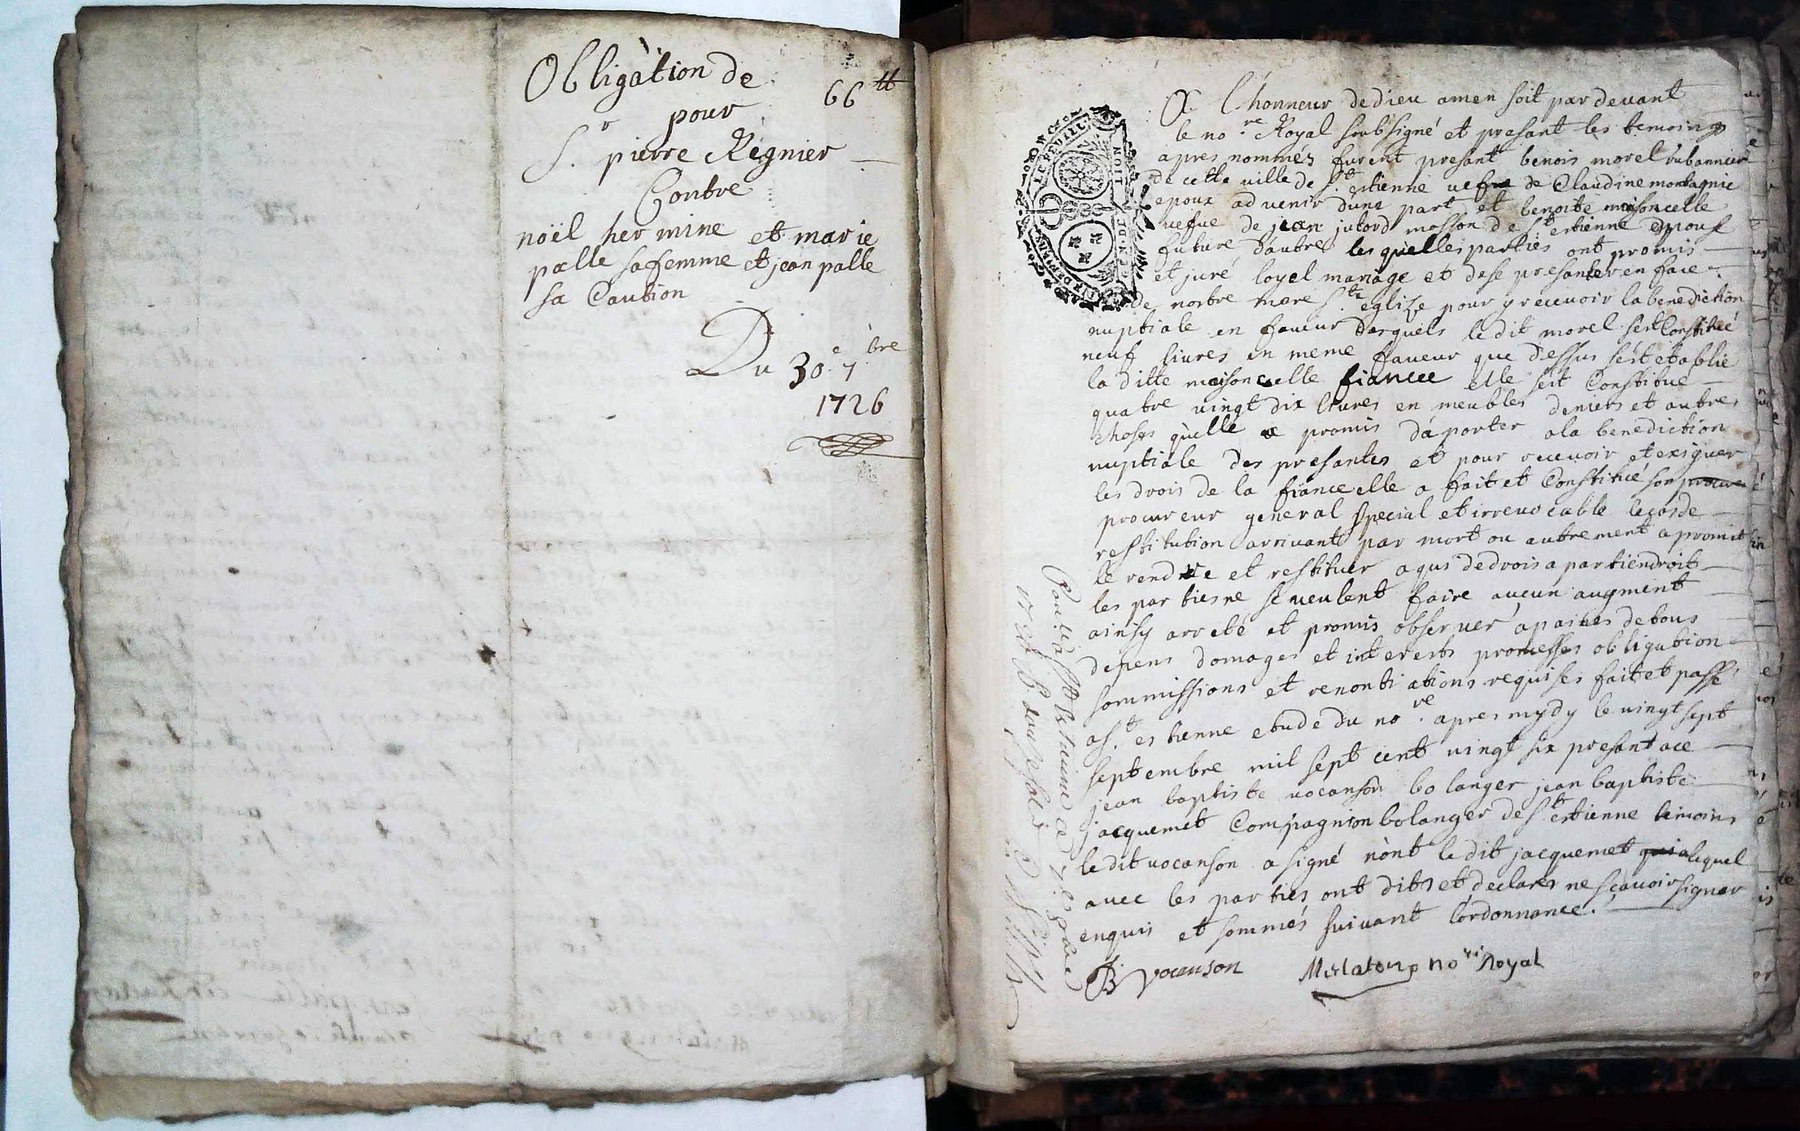 Obligàtion de
66 ₶
pour
S.r pierre Régnier
Contre
noël hermine et marie
palle sa femme et jean palle
sa Caution
Du 30.e 7.bre
1726
A l'honneur de dieu amen soit par devant
le no.re Royal soubsigné et presant les temoins
apres nommés furent presant benois morel rubannier
de cette ville de S.t estienne vefue de Claudine montagnie
epoux advenir dune part et benoite maisoncelle
vefue de jean jutord masson de S.t estienne epouse
future d'autre les quielles parties ont promis
et juré loyel mariage et de se presanter en face
de nostre mere S.te eglize pour y recevoir la benediction
nuptiale en faveur desquels le dit morel sest Constitué
neuf livres en meme faveur que dessus sest etablie
la ditte maisoncelle fiancee elle sest Constitue
quatre vingt dix livres en meubles deniers et autres
choses qu'elle a promis d'aporter a la benediction
nuptiale des presantes et pour recevoir et exiguer
les drois de la fiancee elle a fait et Constitué son procure
procureur general special et irrevocable le cas de
restitution arrivant par mort ou autrement a promit
le rendre et restituer a qui de drois apartiendroit
les parties ne se veulent faire aucun augment
ainsy arreté et promis observer a paines de tous
depens domages et interests promesses obligation
sommissions et renontiations requises fait et passé
a S.t estienne etude du no.re apres mydy le vingt sept
septembre mil sept cent vingt six presant a ce
jean baptiste vocanson bolanger jean baptiste
jacquemet Compagnion bolanger de S.t estienne temoins
le dit vocanson a signé nont le dit jacquemet qui a lequel
avec les parties ont dits et declares ne scavoir signer
enquis et sommés suivant l'ordonnance.
B vocanson
no.re Royal